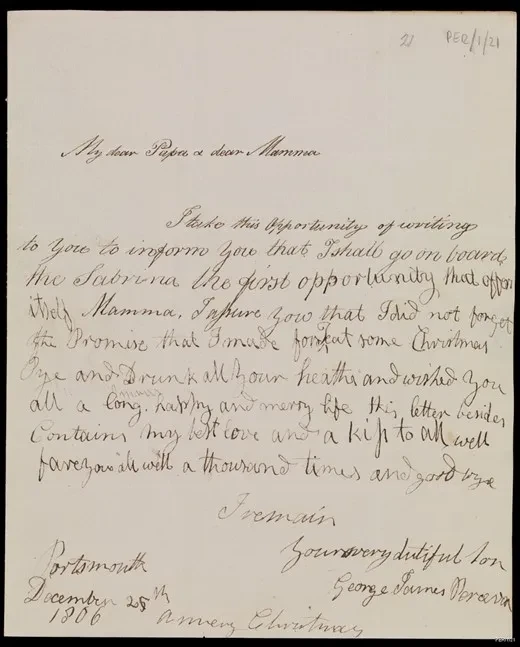 21 PER/1/21
My dear Papa & dear Mamma
I take this Opportunity of writing
to You to inform You that I shall go on board
the Sabrina the first opportunity that offers
itself Mamma, I assure You that I did not forget
the Promise that I made for I eat some Christmas
Pye and Drunk all Your healths and wished You
all a long, happy and merry life this letter besides
Contains my best love and a kiss to all well
fare you all well a thousand times and good bye
I remain
Your very dutiful Son
Portsmouth
George James Perceval
December 28th
1806
a merry Christmas